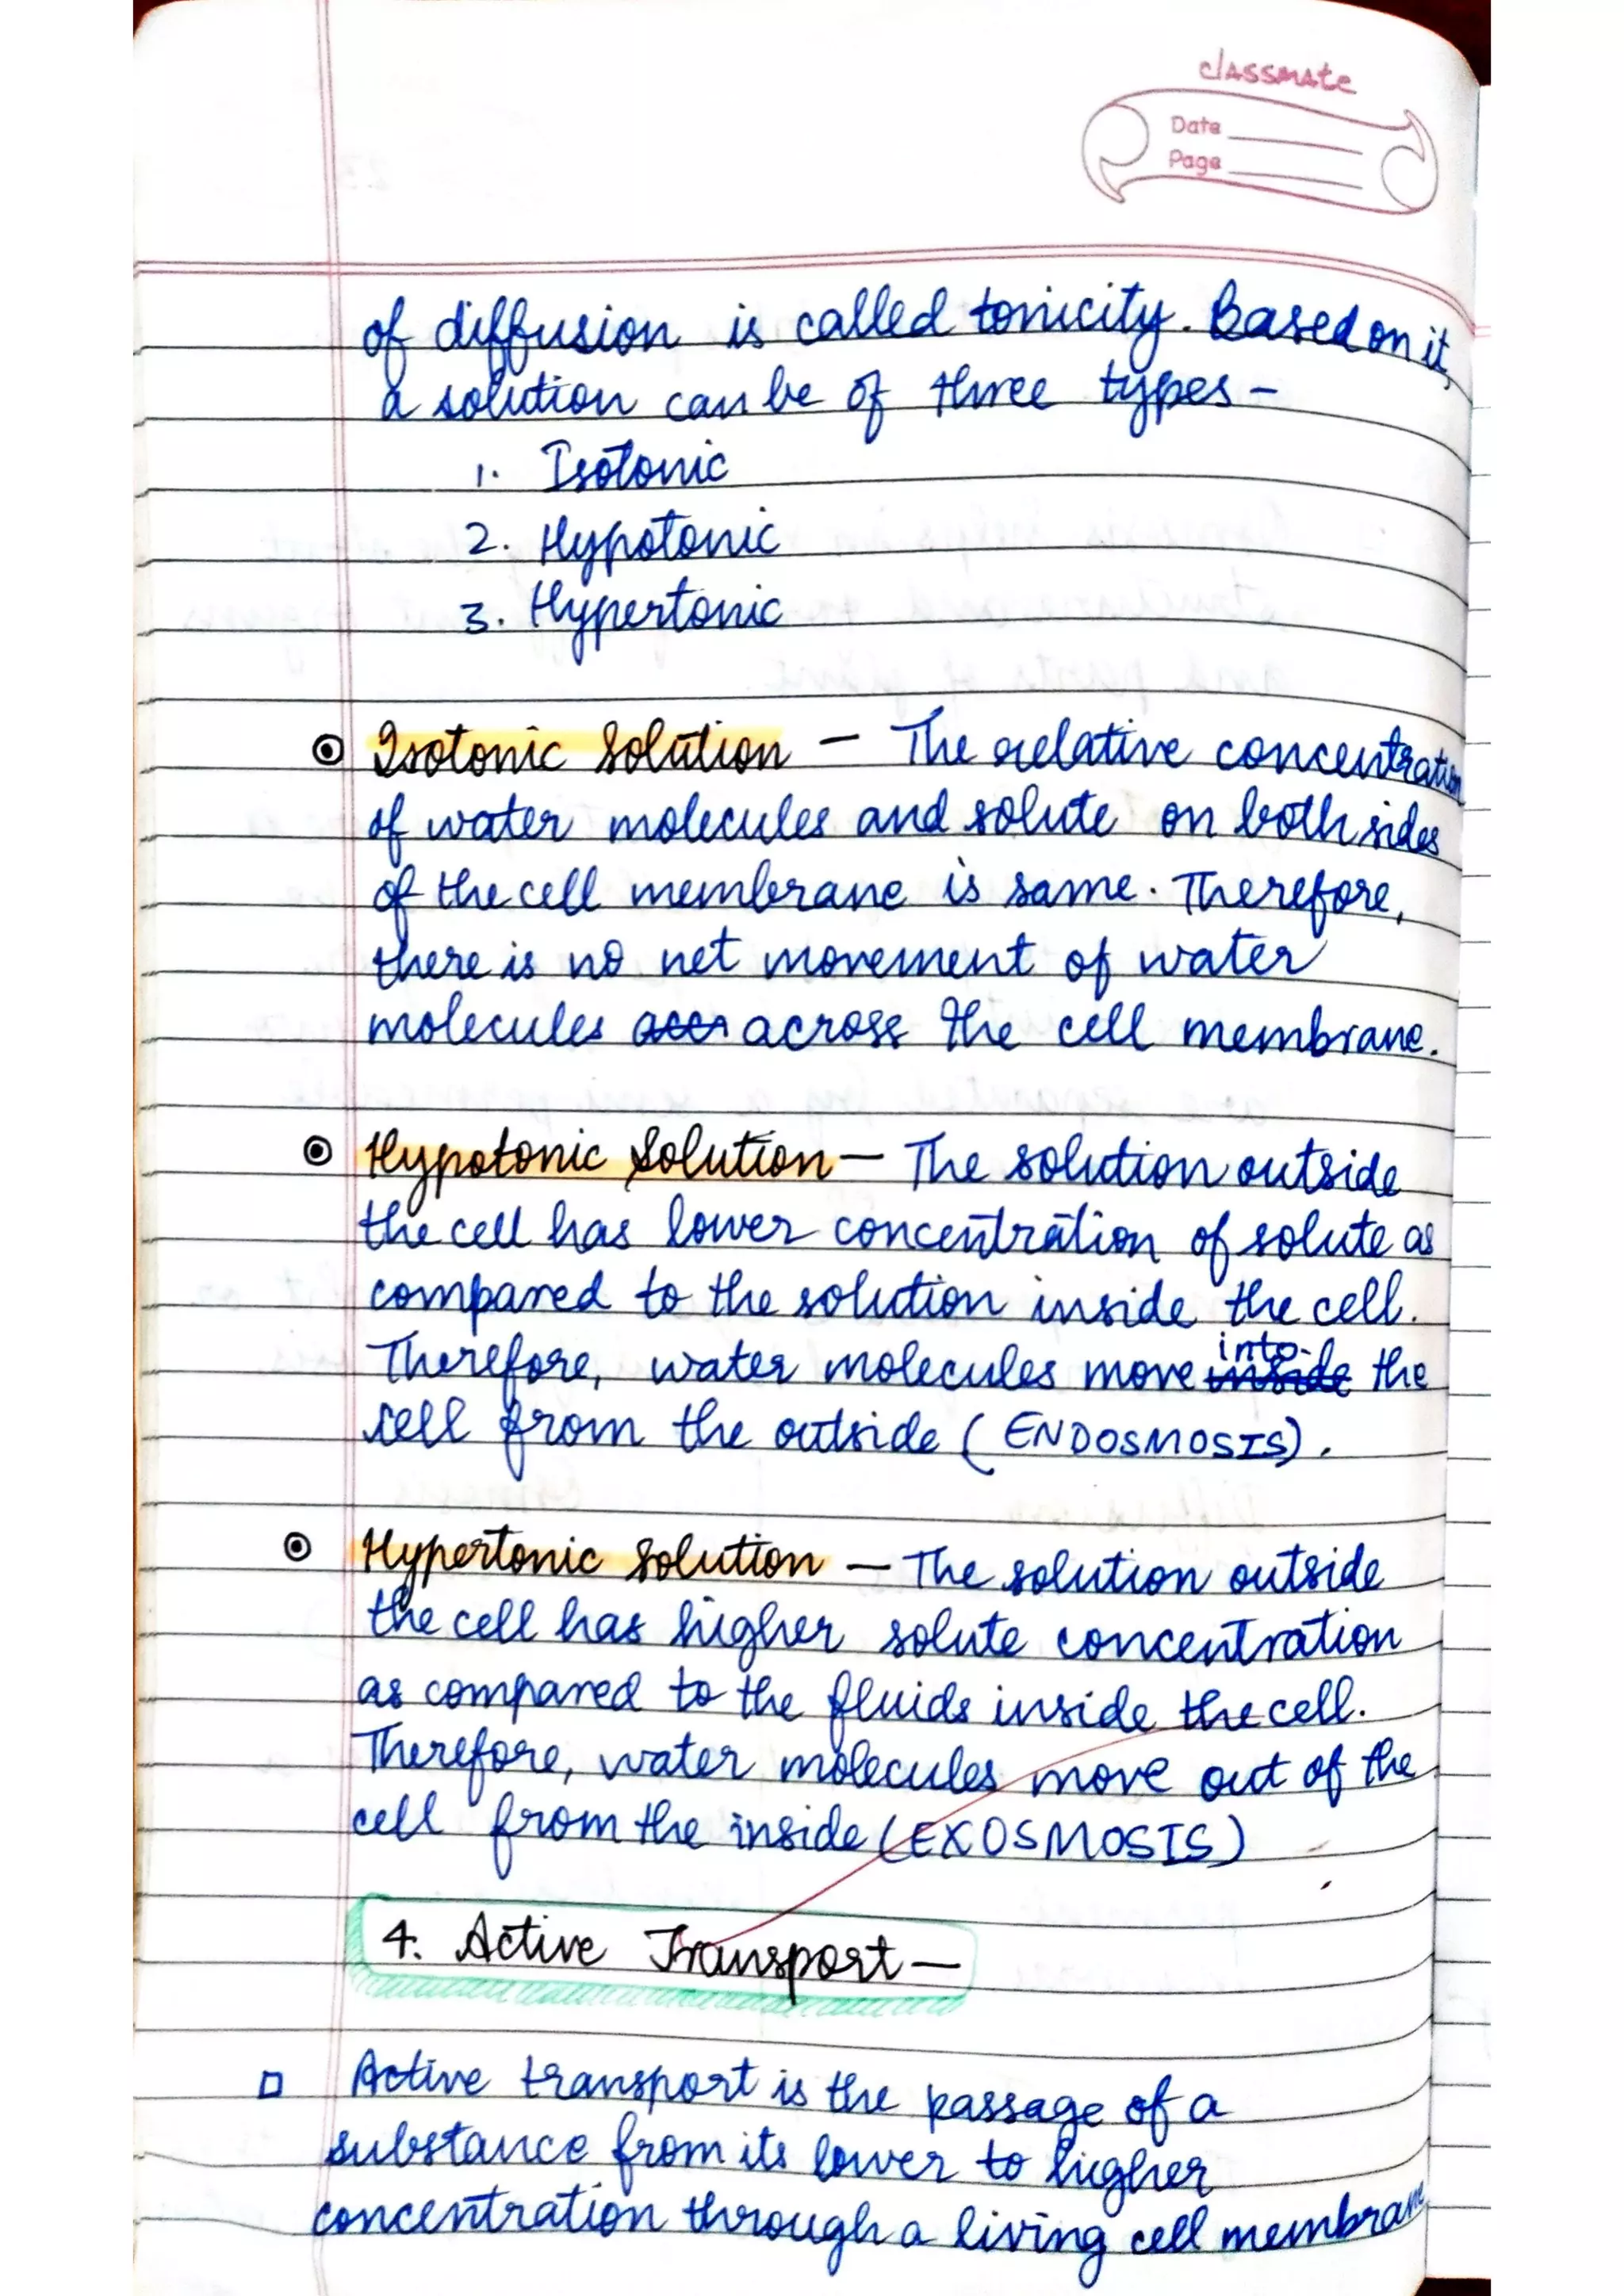 classmate
Date
Page
of diffusion is called tonicity. Based on it,
a solution can be of three types-
1. Isotonic
2. Hypotonic
3. Hypertonic
Isotonic Solution - The relative concentration
of water molecules and solute on both sides
of the cell membrane is same. Therefore,
there is no net movement of water
molecules across the cell membrane.
Hypotonic Solution - The solution outside
the cell has lower concentration of solute as
compared to the solution inside the cell.
Therefore, water molecules move into the
cell from the outside (ENDOSMOSIS).
Hypertonic Solution - The solution outside
the cell has higher solute concentration
as compared to the fluids inside the cell.
Therefore, water molecules move out of the
cell from the inside (EXOSMOSIS)
4. Active Transport-
Active transport is the passage of a
substance from its lower to higher
concentration through a living cell membrane